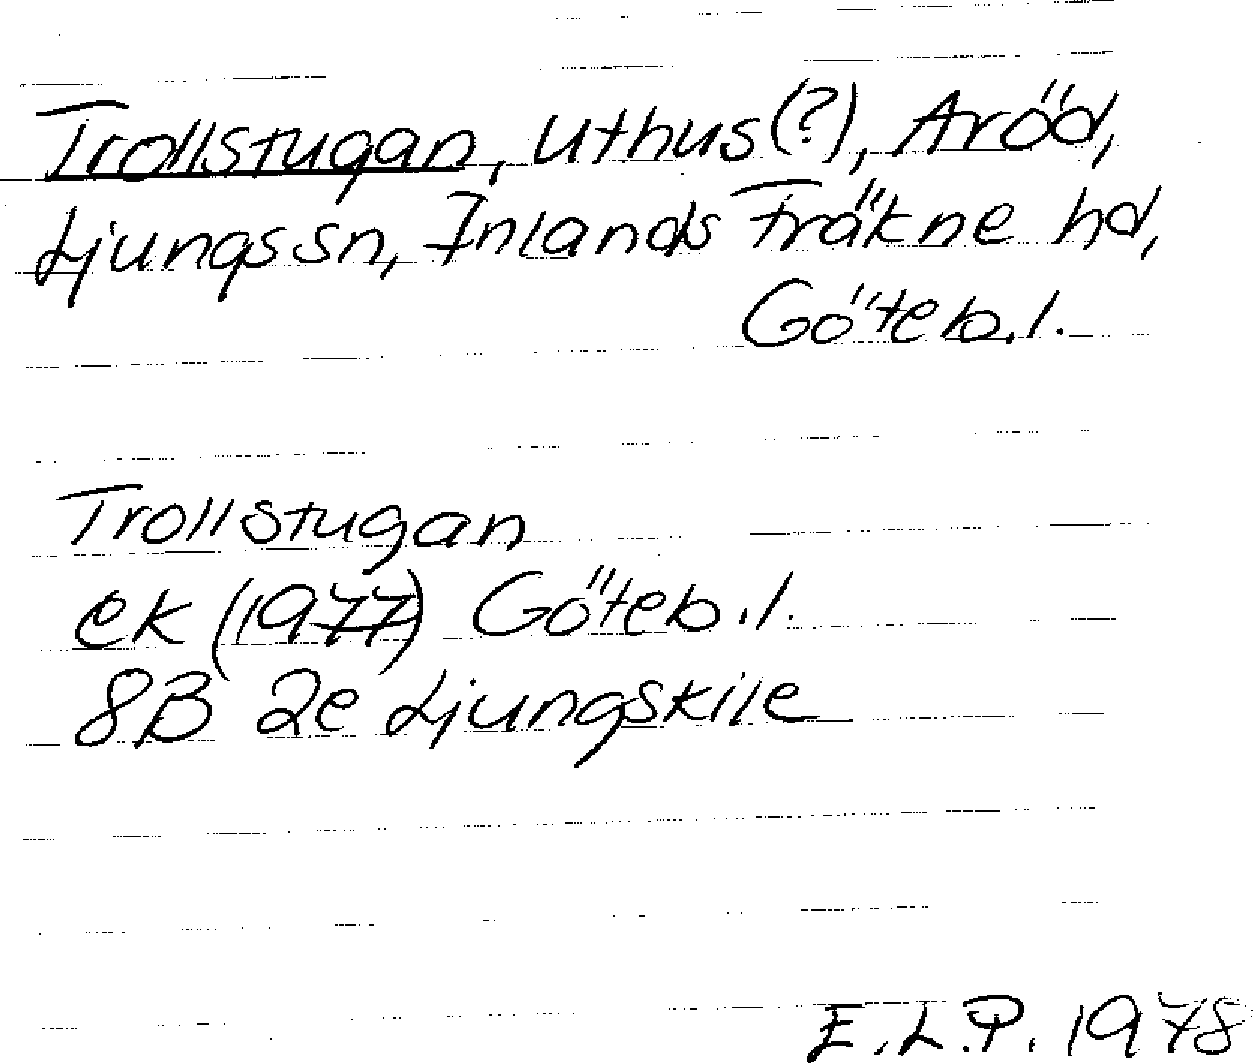 Trollstugan, uthus(?), Aröd,
Ljungs sn, Inlands Fräkne hd,
Göteb.l.
Trollstugan
ek (1977) Göteb.l.
8B 2e Ljungskile
E.L.P. 1978